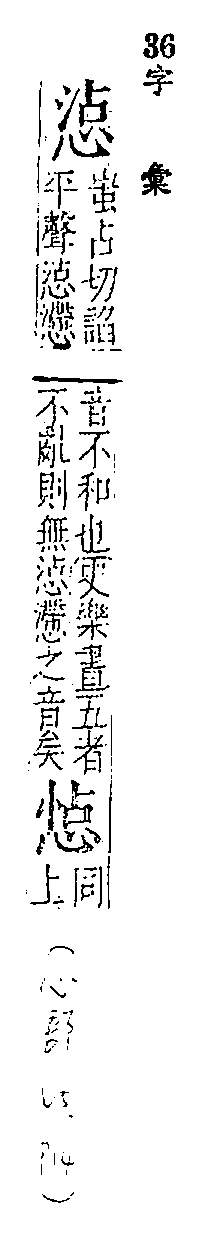 36
字彙
惉
蚩占切諂
平聲惉懘
音不和也史樂書五者
不亂則無惉懘之音矣
同
上
(心部